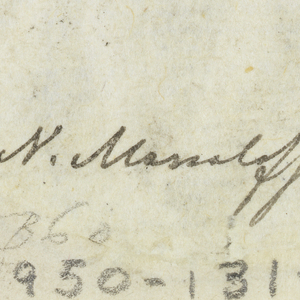 N. Massaloff
B60
950-131-